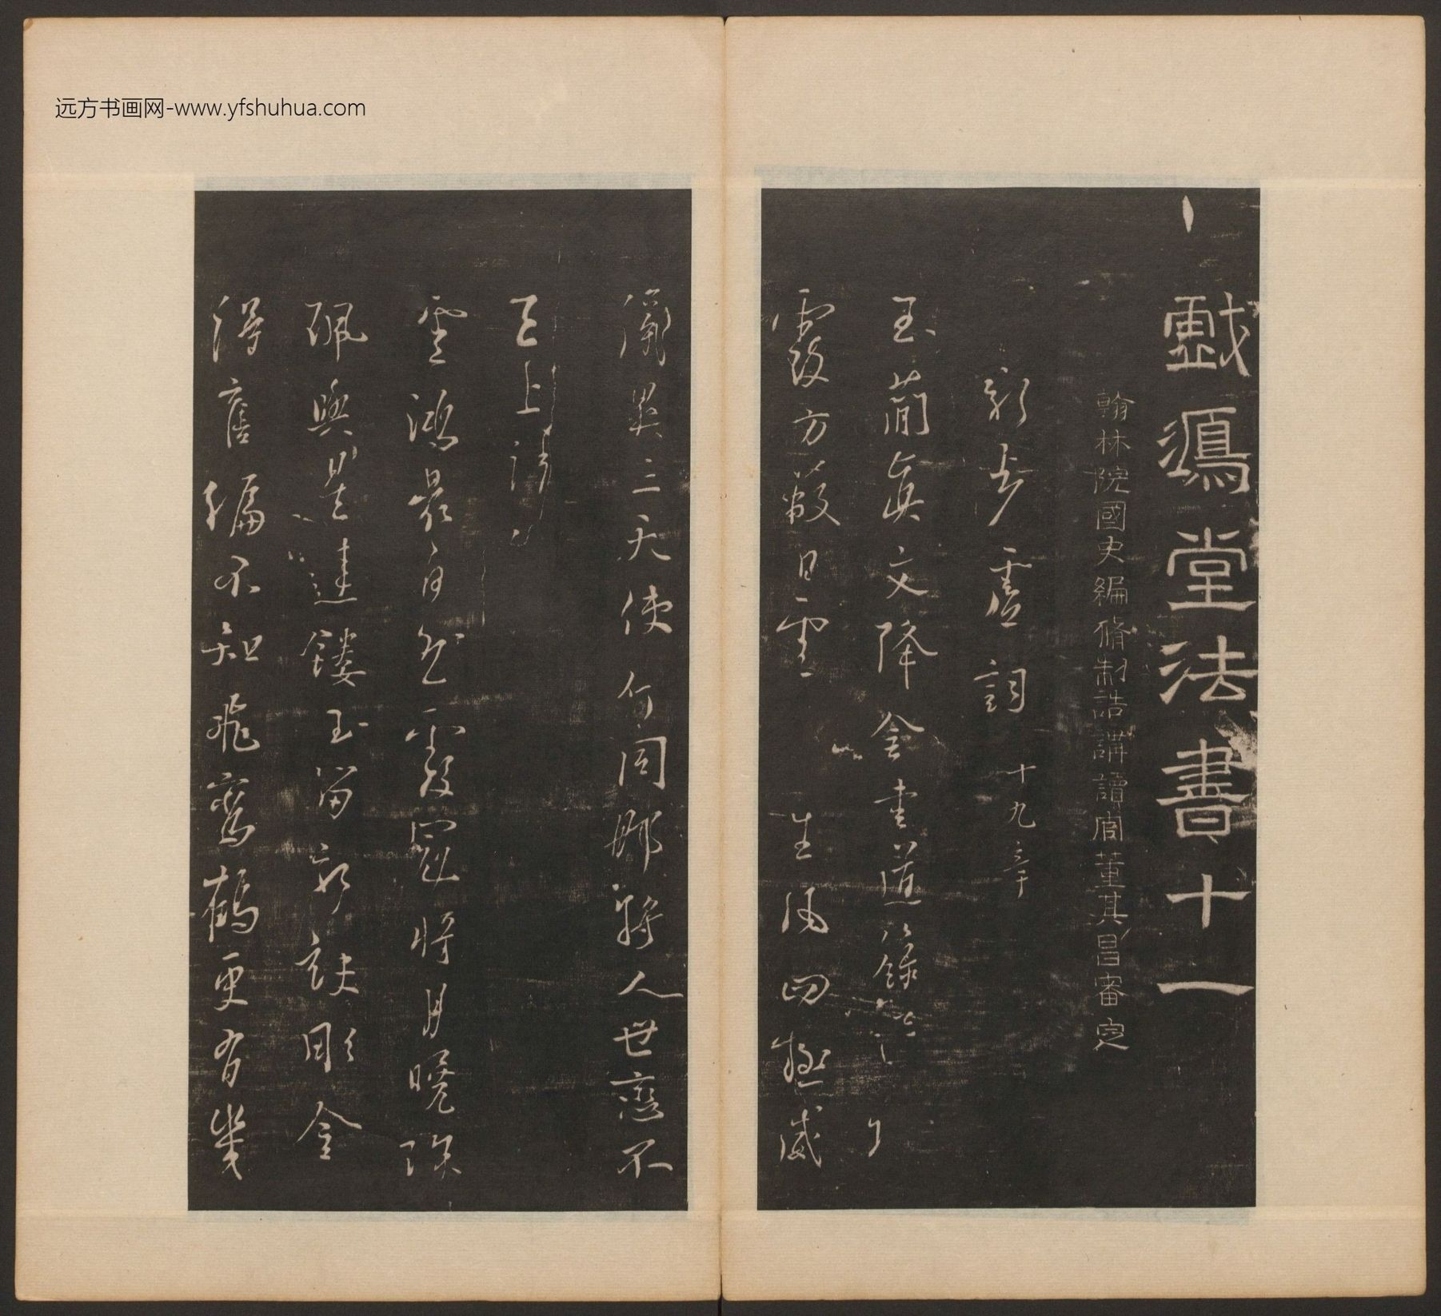 远方书画网-www.yfshuhua.com
戲鴻堂法書十一
翰林院國史編脩制誥講讀官董其昌審定
新步虛詞十九章
玉簡真文降金書道籙
霞方蔽日雲 生風四極威
儀異三天使命同那將人世戀不
去上清
雲鴻最自然霞冠將月曉珠
珮與星連鏤玉留新訣彫金
得舊編不知飛鸞鶴更有幾